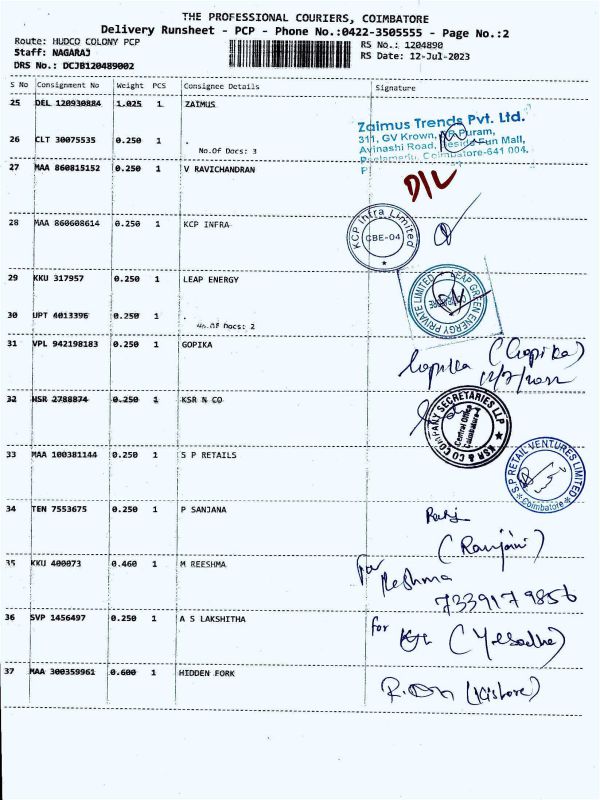 THE PROFESSIONAL COURIERS, COIMBATORE
Delivery Runsheet - PCP - Phone No.:0422-3505555 - Page No.:2
Route: HUDCO COLONY PCP
RS No.: 1204890
Staff: NAGARAJ
RS Date: 12-Jul-2023
DRS No.: DCJB120489002
S No Consignment No Weight PCS Consignee Details Signature
25 DEL 120930884 1.025 1 ZAIMUS
Zaimus Trends Pvt. Ltd.
311, GV Krown, Puram,
26 CLT 30075535 0.250 1 .
Avinashi Road, Beside Fun Mall,
No.Of Docs: 3
Coimbatore-641 004.
27 MAA 860815152 0.250 1 V RAVICHANDRAN
D/L
28 MAA 860608614 0.250 1 KCP INFRA
KCP Infra Limited
CBE-04
29 KKU 317957 0.250 1 LEAP ENERGY
LEAP GREEN ENERGY PRIVATE LIMITED
30 UPT 4013396 0.250 1 .
No.Of Docs: 2
31 VPL 942198183 0.250 1 GOPIKA
Gopika (Gopika)
32 HSR 2788874 0.250 1 KSR N CO
KSR & CO COMPANY SECRETARIES LLP
Central Office
Coimbatore
33 MAA 100381144 0.250 1 S P RETAILS
S P RETAIL VENTURES LIMITED
Coimbatore
34 TEN 7553675 0.250 1 P SANJANA
(Ranjani)
35 KKU 400073 0.460 1 M REESHMA
for
Reshma
7339179856
36 SVP 1456497 0.250 1 A S LAKSHITHA
for (Yesodha)
37 MAA 300359961 0.600 1 HIDDEN FORK
(Kishore)